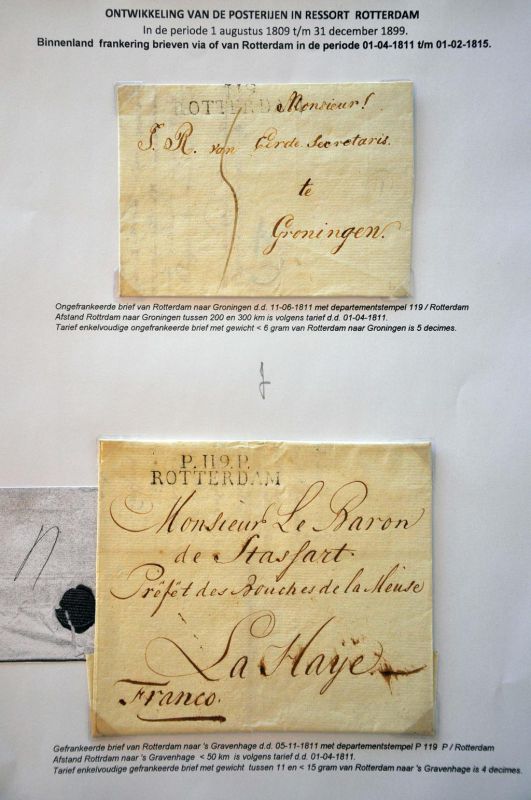 ONTWIKKELING VAN DE POSTERIJEN IN RESSORT ROTTERDAM
In de periode 1 augustus 1809 t/m 31 december 1899.
Binnenland frankering brieven via of van Rotterdam in de periode 01-04-1811 t/m 01-02-1815.
119
ROTTERDAM
Monsieur!
J. R. van Eerde Secretaris.
te
Groningen.
5
Ongefrankeerde brief van Rotterdam naar Groningen d.d. 11-06-1811 met departementstempel 119 / Rotterdam
Afstand Rottrdam naar Groningen tussen 200 en 300 km is volgens tarief d.d. 01-04-1811.
Tarief enkelvoudige ongefrankeerde brief met gewicht < 6 gram van Rotterdam naar Groningen is 5 decimes.
P.119.P.
ROTTERDAM
Monsieur Le Baron
de Stassart.
Préfét des Bouches de la Meuse
La Haÿe
Franco.
Gefrankeerde brief van Rotterdam naar 's Gravenhage d.d. 05-11-1811 met departementstempel P 119 P / Rotterdam
Afstand Rottrdam naar 's Gravenhage < 50 km is volgens tarief d.d. 01-04-1811.
Tarief enkelvoudige gefrankeerde brief met gewicht tussen 11 en < 15 gram van Rotterdam naar 's Gravenhage is 4 decimes.